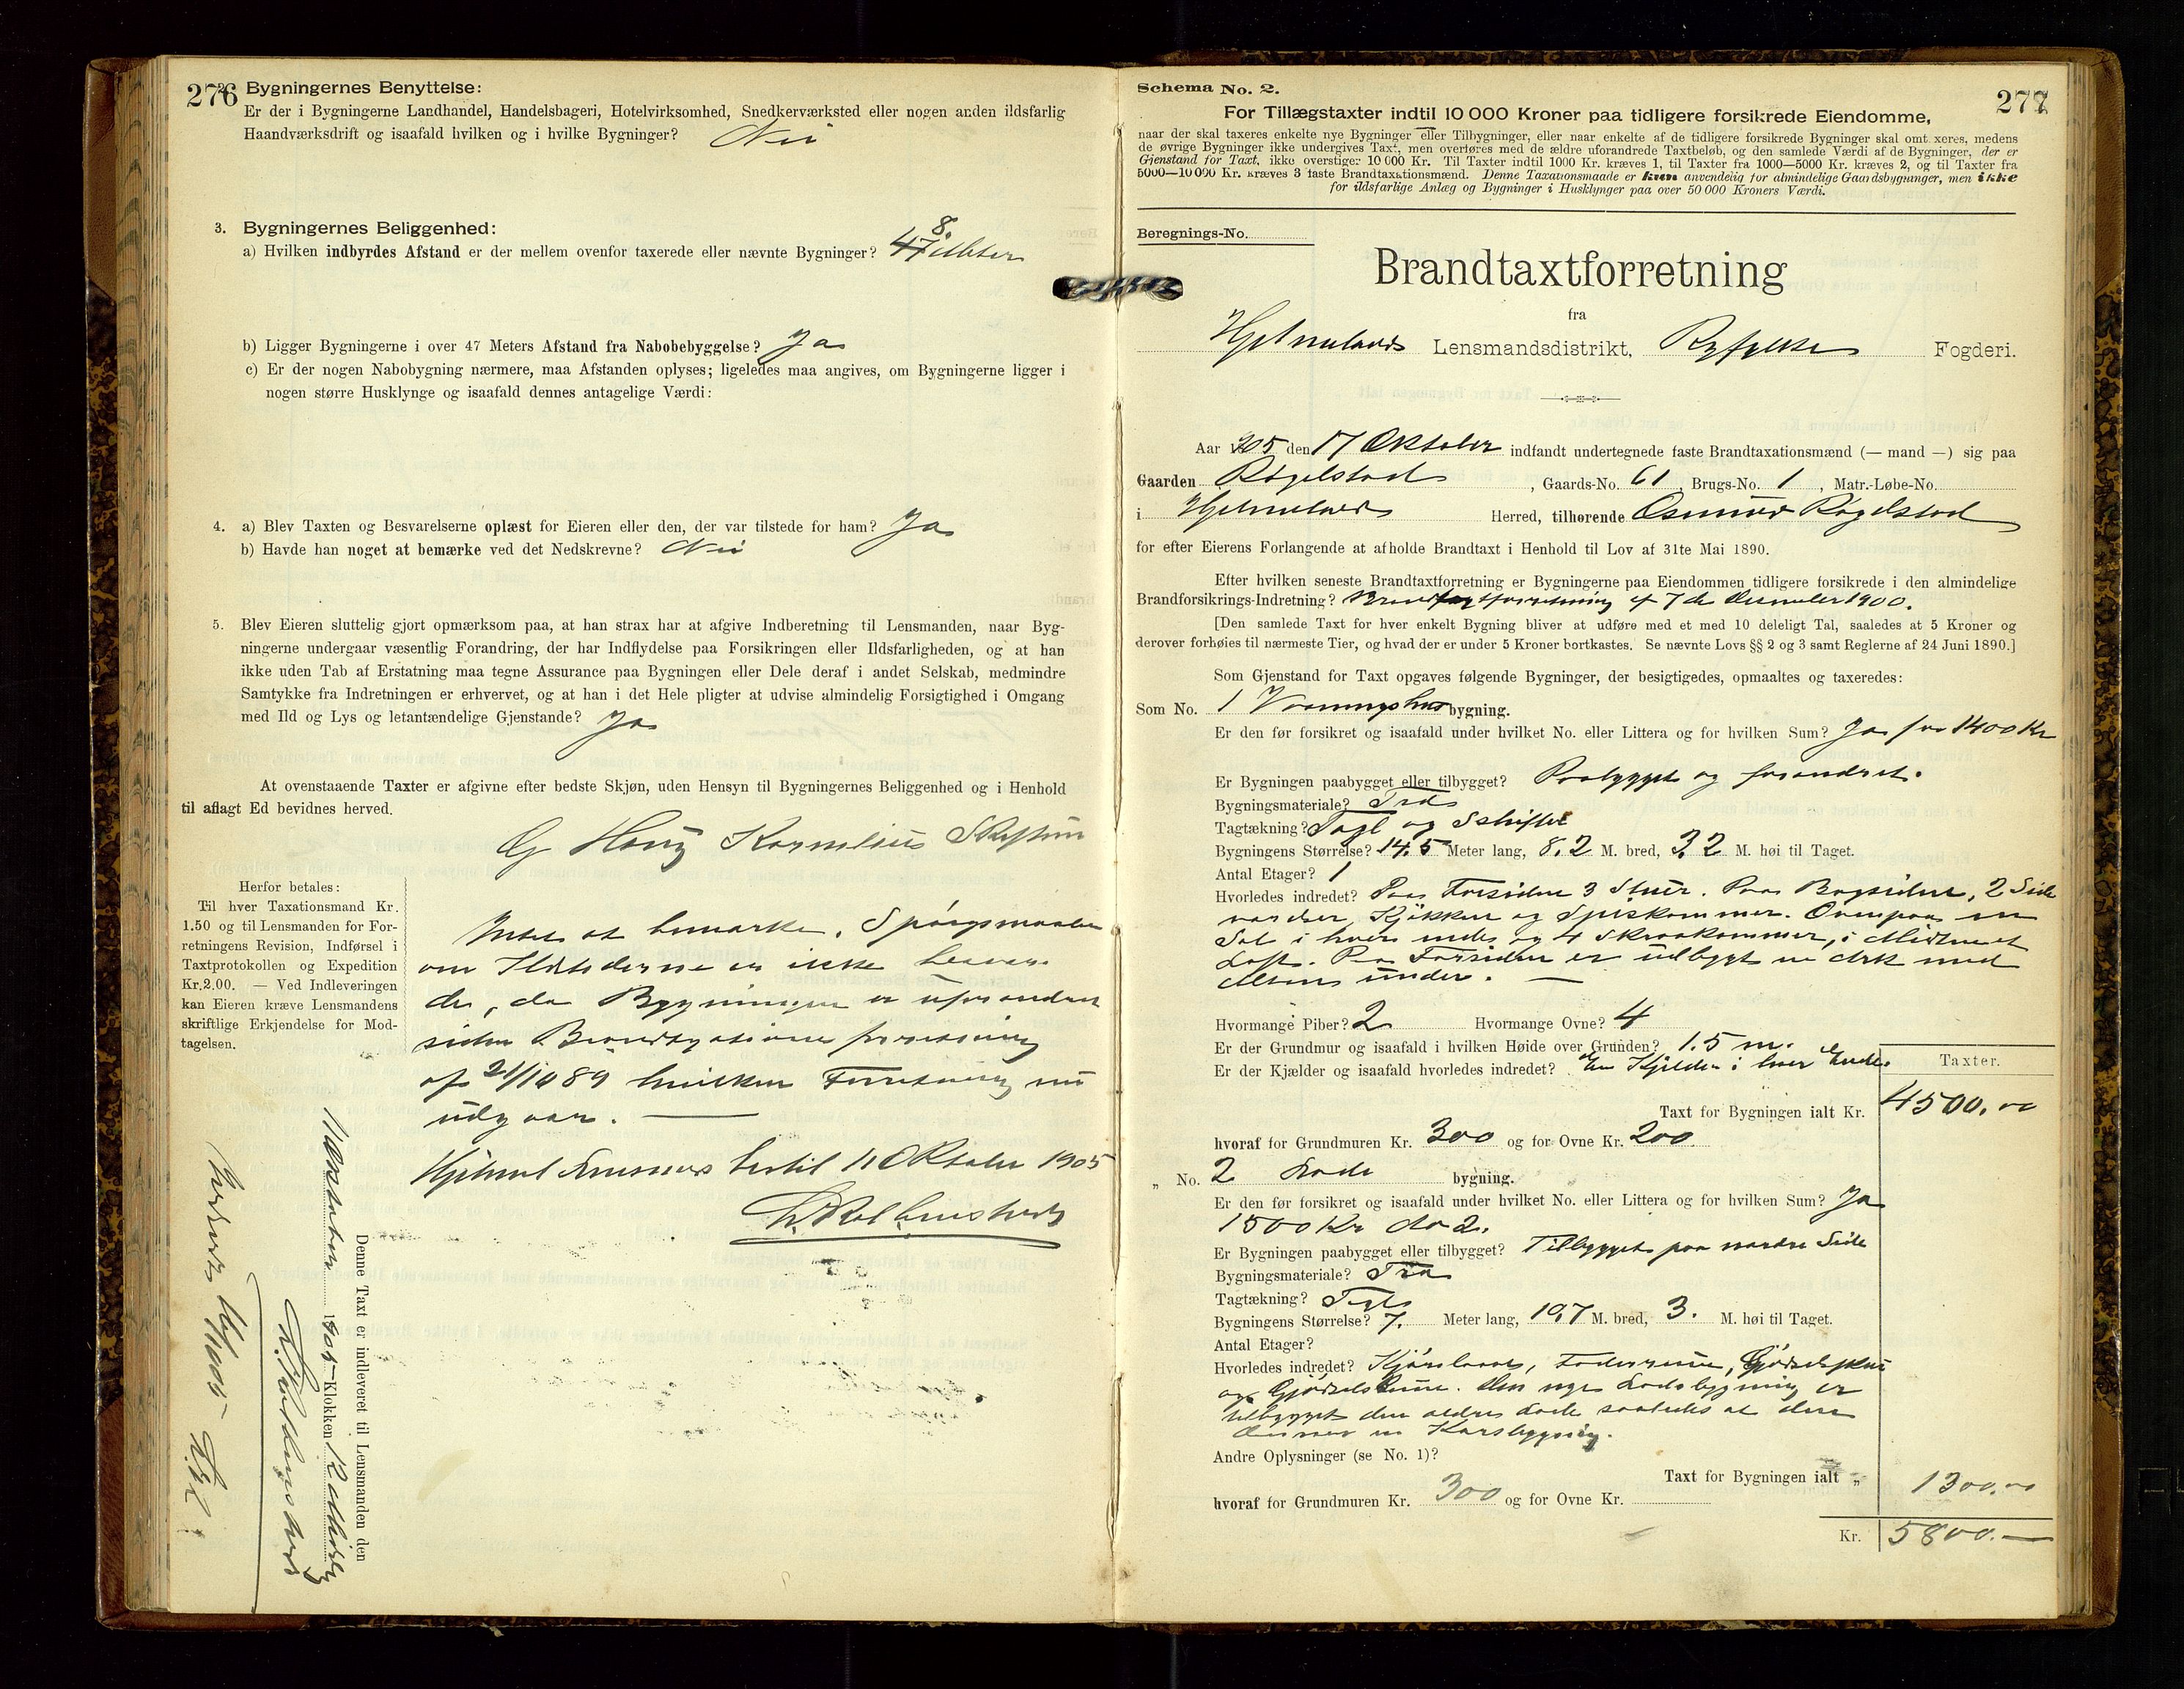 276
2. Bygningernes Benyttelse:
Er der i Bygningerne Landhandel, Handelsbageri, Hotelvirksomhed, Snedkerværksted eller nogen anden ildsfarlig
Haandværksdrift og isaafald hvilken og i hvilke Bygninger? Nei
3. Bygningernes Beliggenhed:
8.
a) Hvilken indbyrdes Afstand er der mellem ovenfor taxerede eller nævnte Bygninger? 47 Meter
b) Ligger Bygningerne i over 47 Meters Afstand fra Nabobebyggelse? Ja
c) Er der nogen Nabobygning nærmere, maa Afstanden oplyses; ligeledes maa angives, om Bygningerne ligger i
nogen større Husklynge og isaafald dennes antagelige Værdi:
4. a) Blev Taxten og Besvarelserne oplæst for Eieren eller den, der var tilstede for ham? Ja
b) Havde han noget at bemærke ved det Nedskrevne? Nei
5. Blev Eieren sluttelig gjort opmærksom paa, at han strax har at afgive Indberetning til Lensmanden, naar Byg-
ningerne undergaar væsentlig Forandring, der har Indflydelse paa Forsikringen eller Ildsfarligheden, og at han
ikke uden Tab af Erstatning maa tegne Assurance paa Bygningen eller Dele deraf i andet Selskab, medmindre
Samtykke fra Indretningen er erhvervet, og at han i det Hele pligter at udvise almindelig Forsigtighed i Omgang
med Ild og Lys og letantændelige Gjenstande? Ja
At ovenstaaende Taxter er afgivne efter bedste Skjøn, uden Hensyn til Bygningernes Beliggenhed og i Henhold
til aflagt Ed bevidnes herved.
G Houg Kornelius
Herfor betales:
Til hver Taxationsmand Kr.
1.50 og til Lensmanden for For-
retningens Revision, Indførsel i
Taxtprotokollen og Expedition
Kr.2.00. — Ved Indleveringen
kan Eieren kræve Lensmandens
skriftlige Erkjendelse for Mod-
tagelsen.
Intet at bemærke. Spørgsmaalene
om Ildstederne er ikke besvare
de, da Bygningen er uforandret
siden Brandtaxtions forretning
af 21/10 89 hvilken Forretning nu
udgaar.
Hjelmelands Lensmands bestil 11 Oktober 1905
Denne Taxt er indleveret til Lensmanden den
11 Oktober 1905 Klokken 12 Middag
Schema No. 2.
277
For Tillægstaxter indtil 10 000 Kroner paa tidligere forsikrede Eiendomme,
naar der skal taxeres enkelte nye Bygninger eller Tilbygninger, eller naar enkelte af de tidligere forsikrede Bygninger skal omt xeres, medens
de øvrige Bygninger ikke undergives Taxt, men overføres med de ældre uforandrede Taxtbeløb, og den samlede Værdi af de Bygninger, der er
Gjenstand for Taxt, ikke overstiger 10 000 Kr. Til Taxter indtil 1000 Kr. kræves 1, til Taxter fra 1000—5000 Kr. kræves 2, og til Taxter fra
5000—10 000 Kr. kræves 3 faste Brandtaxationsmænd. Denne Taxationsmaade er kun anvendelig for almindelige Gaardsbygninger, men ikke
for ildsfarlige Anlæg og Bygninger i Husklynger paa over 50 000 Kroners Værdi.
Beregnings-No.
Brandtaxtforretning
fra
Hjelmelands Lensmandsdistrikt, Ryfylke Fogderi.
Aar 1905 den 17 Oktober indfandt undertegnede faste Brandtaxationsmænd (— mand —) sig paa
Gaarden Røgelstad, Gaards-No. 61, Brugs-No. 1, Matr.-Løbe-No.
i Hjelmelands Herred, tilhørende Osmund Røgelstad
for efter Eierens Forlangende at afholde Brandtaxt i Henhold til Lov af 31te Mai 1890.
Efter hvilken seneste Brandtaxtforretning er Bygningerne paa Eiendommen tidligere forsikrede i den almindelige
Brandforsikrings-Indretning? Brandtaxtforretning af 7de December 1900.
[Den samlede Taxt for hver enkelt Bygning bliver at udføre med et med 10 deleligt Tal, saaledes at 5 Kroner og
derover forhøies til nærmeste Tier, og hvad der er under 5 Kroner bortkastes. Se nævnte Lovs §§ 2 og 3 samt Reglerne af 24 Juni 1890.]
Som Gjenstand for Taxt opgaves følgende Bygninger, der besigtigedes, opmaaltes og taxeredes:
Som No. 1 Vaaningshus bygning.
Er den før forsikret og isaafald under hvilket No. eller Littera og for hvilken Sum? Ja for 1400 Kr
Er Bygningen paabygget eller tilbygget? Paabygget og forandret.
Bygningsmateriale? Træ
Tagtækning? Tagl og Schifter
Bygningens Størrelse? 14.5 Meter lang, 8.2 M. bred, 3.2 M. høi til Taget.
Antal Etager? 1
Hvorledes indredet? Paa Forsiden 3 Stuer. Paa Bagsiden, 2 Side
værelser, Kjøkken og Spiskammer. Ovenpaa en
Sal i hver ende og 4 Skraakammer, i Midten et
Loft. Paa Forsiden er udbygt en Ark med
Altan under.
Hvormange Piber? 2 Hvormange Ovne? 4
Er der Grundmur og isaafald i hvilken Høide over Grunden? 1.5 m.
Er der Kjælder og isaafald hvorledes indredet? En Kjelder i hver Ende.
Taxter.
Taxt for Bygningen ialt Kr. 4500.00
hvoraf for Grundmuren Kr. 300 og for Ovne Kr. 200
„ No. 2 Lade bygning.
Er den før forsikret og isaafald under hvilket No. eller Littera og for hvilken Sum? Ja
1500 Kr No 2.
Er Bygningen paabygget eller tilbygget? Tilbygget paa nordre Side
Bygningsmateriale? Træ
Tagtækning? Tegl
Bygningens Størrelse? 7. Meter lang, 10.7 M. bred, 3. M. høi til Taget.
Antal Etager?
Hvorledes indredet? Kjørelaave, Foderrum, Gjødselskur
og Gjødselsrum. Den nye Ladebygning er
tilbygget den ældre Lade saaledes at den
danner en Korsbygning.
Andre Oplysninger (se No. 1)?
Taxt for Bygningen ialt „ 1300.00
hvoraf for Grundmuren Kr. 300 og for Ovne Kr.
Kr. 5800.—